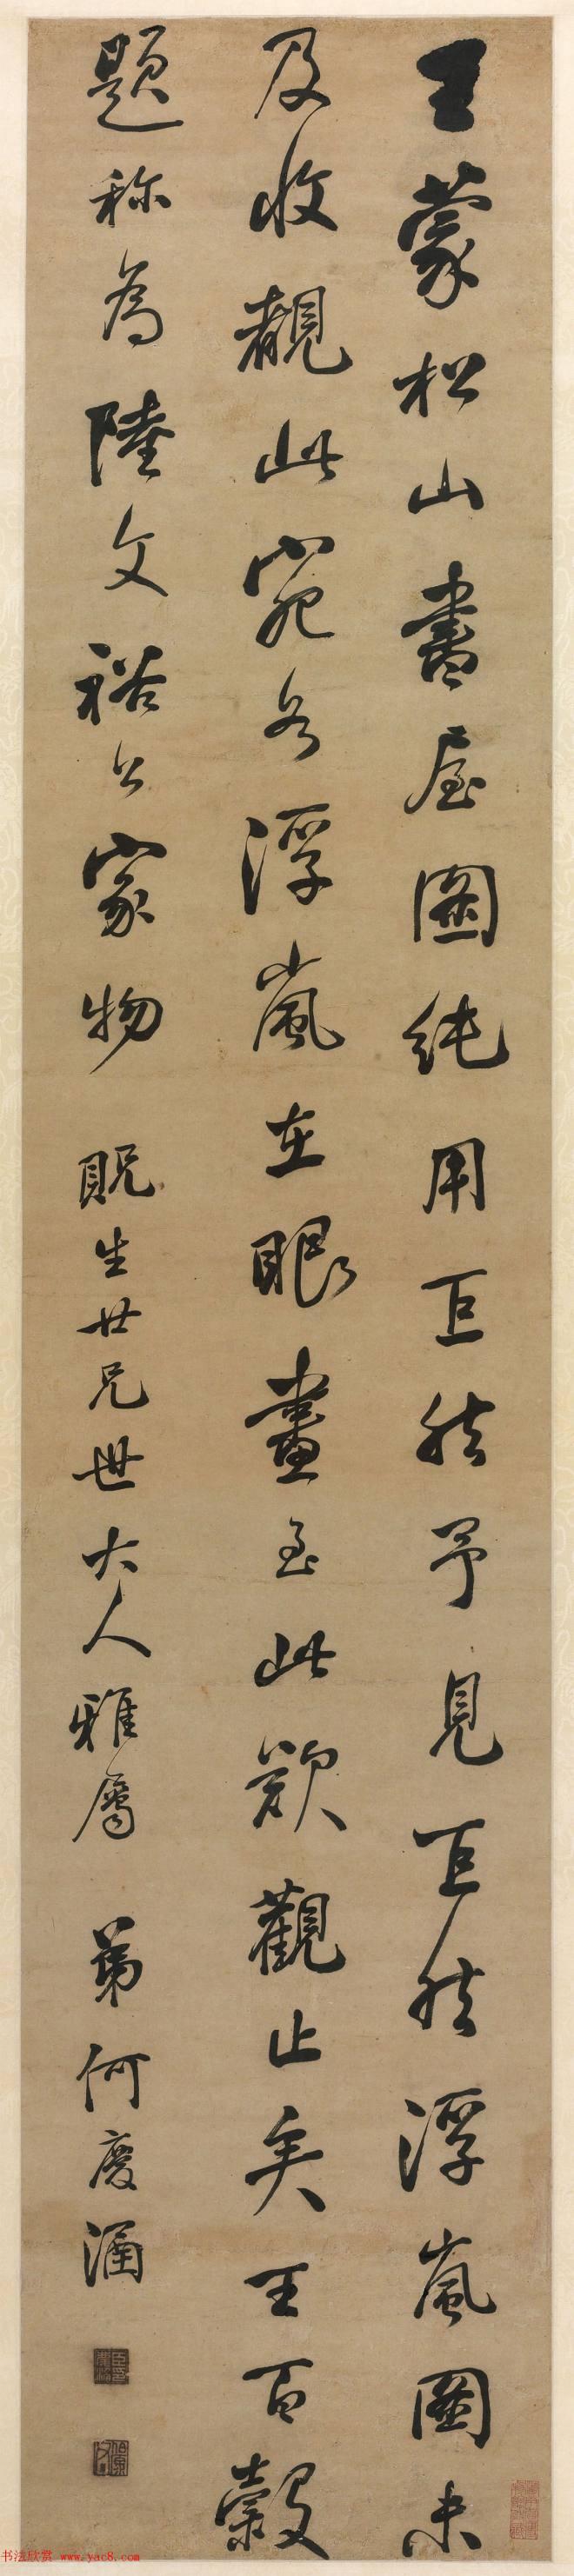 王蒙松山書屋圖純用巨然予見巨然浮嵐圖未
及收觀此宛若浮嵐在眼畫至此歎觀止矣王百穀
題称為陸文裕公家物
貺生世兄世大人雅屬 弟何慶涵
书法欣赏 www.yac8.com